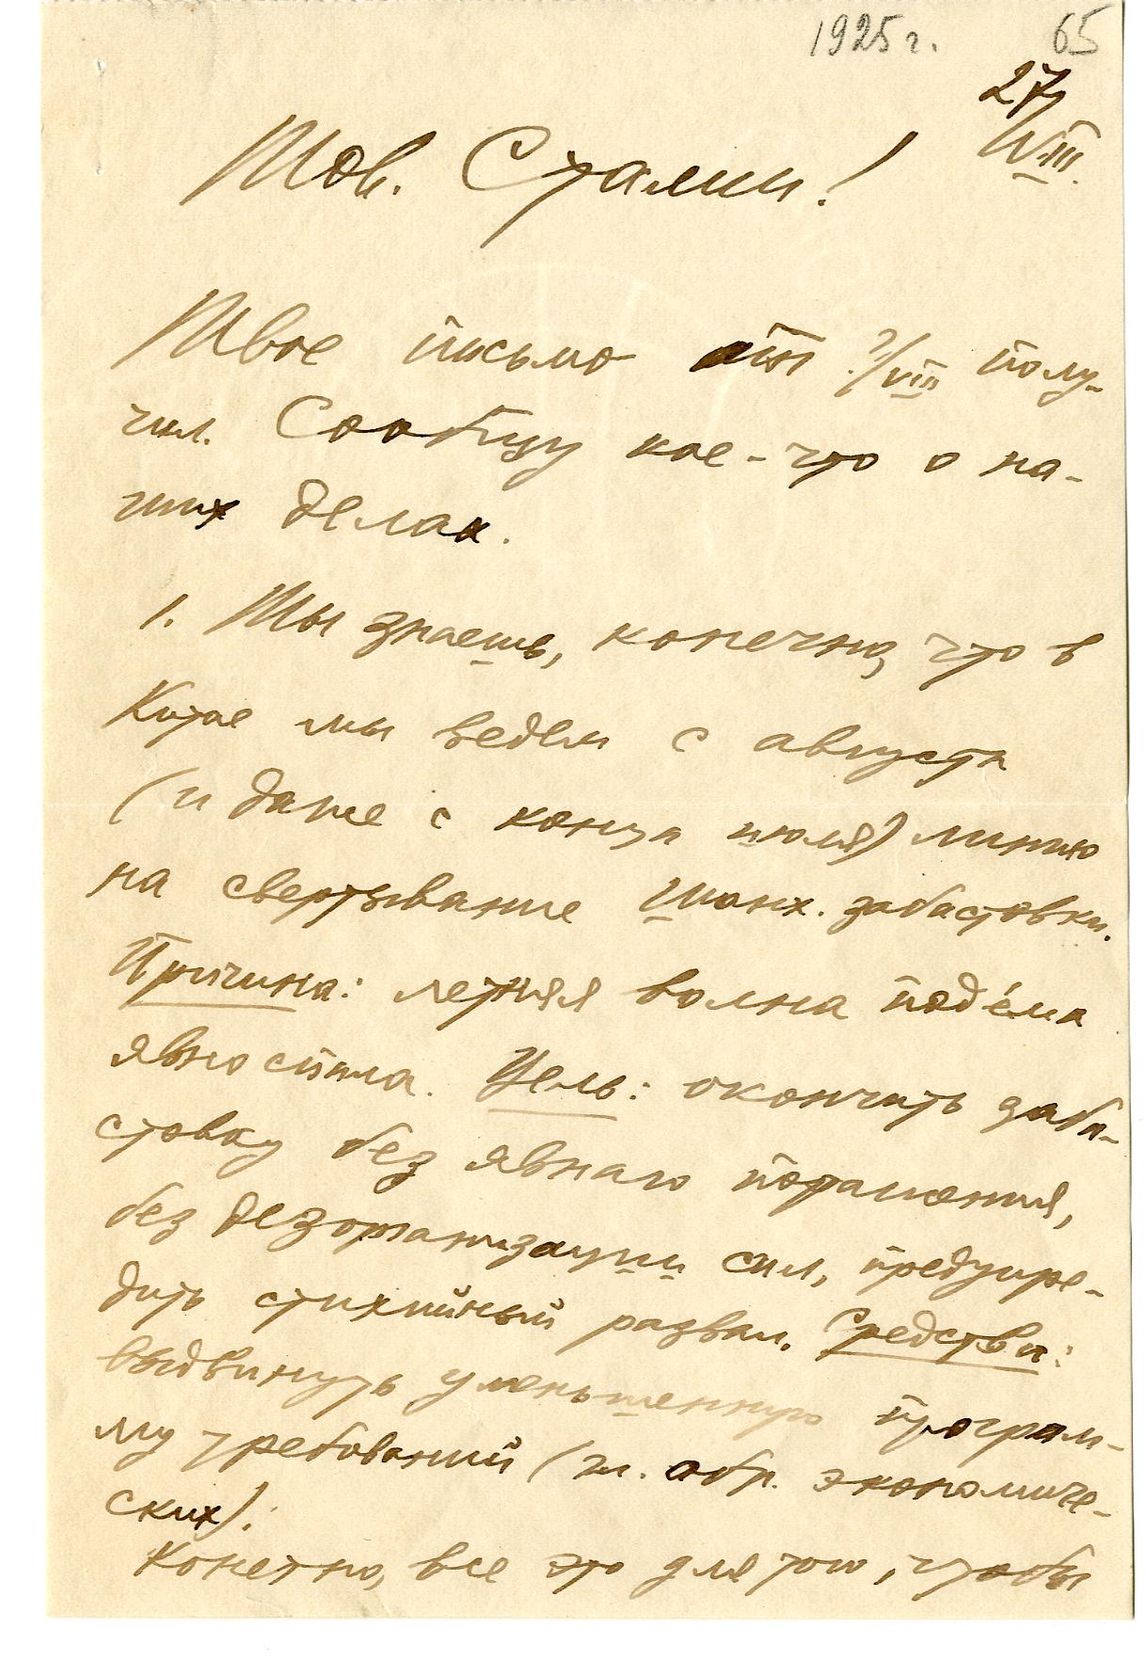 1925 г. 65
27/VIII.
Тов. Сталин!
Твое письмо от ?/VIII полу-
чил. Сообщу кое-что о на-
ших делах.
1. Ты знаешь, конечно, что в
Китае мы ведем с августа
(и даже с конца июля) линию
на свертывание Шанх. забастовки.
Причина: летняя волна подъема
явно спала. Цель: окончить заба-
стовку без явного поражения,
без дезорганизации сил, предупре-
дить стихийный развал. Средства:
выдвинуть уменьшенную програм-
му требований (гл. обр. экономиче-
ских).
Конечно, все это для того, чтобы